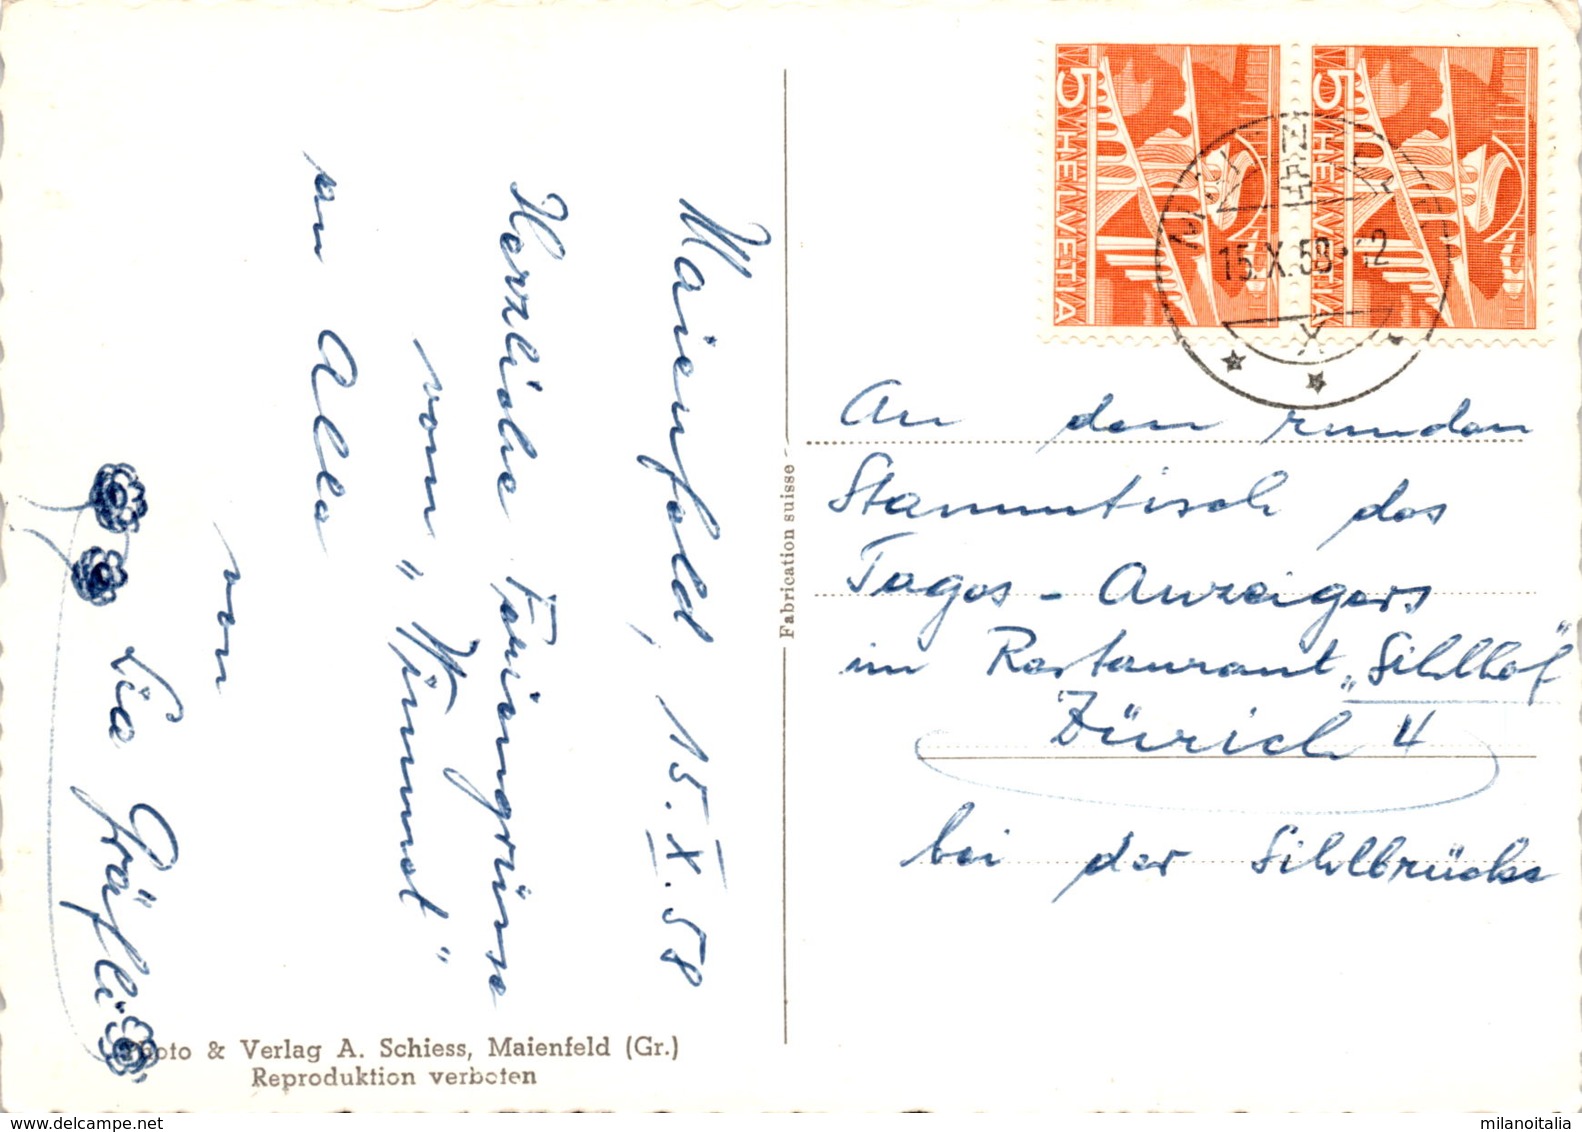 Maienfeld, 15. X. 58
Herzliche Feriengrüsse
vom „Wümmet"
an Alle
von
Lia Gräfli
Photo & Verlag A. Schiess, Maienfeld (Gr.)
Reproduktion verboten
Fabrication suisse
5 HELVETIA
5 HELVETIA
15.X.58-12
An den runden
Stammtisch des
Tages-Anzeigers
im Restaurant „Sihlhof"
Zürich 4
bei der Sihlbrücke
milanoitalia